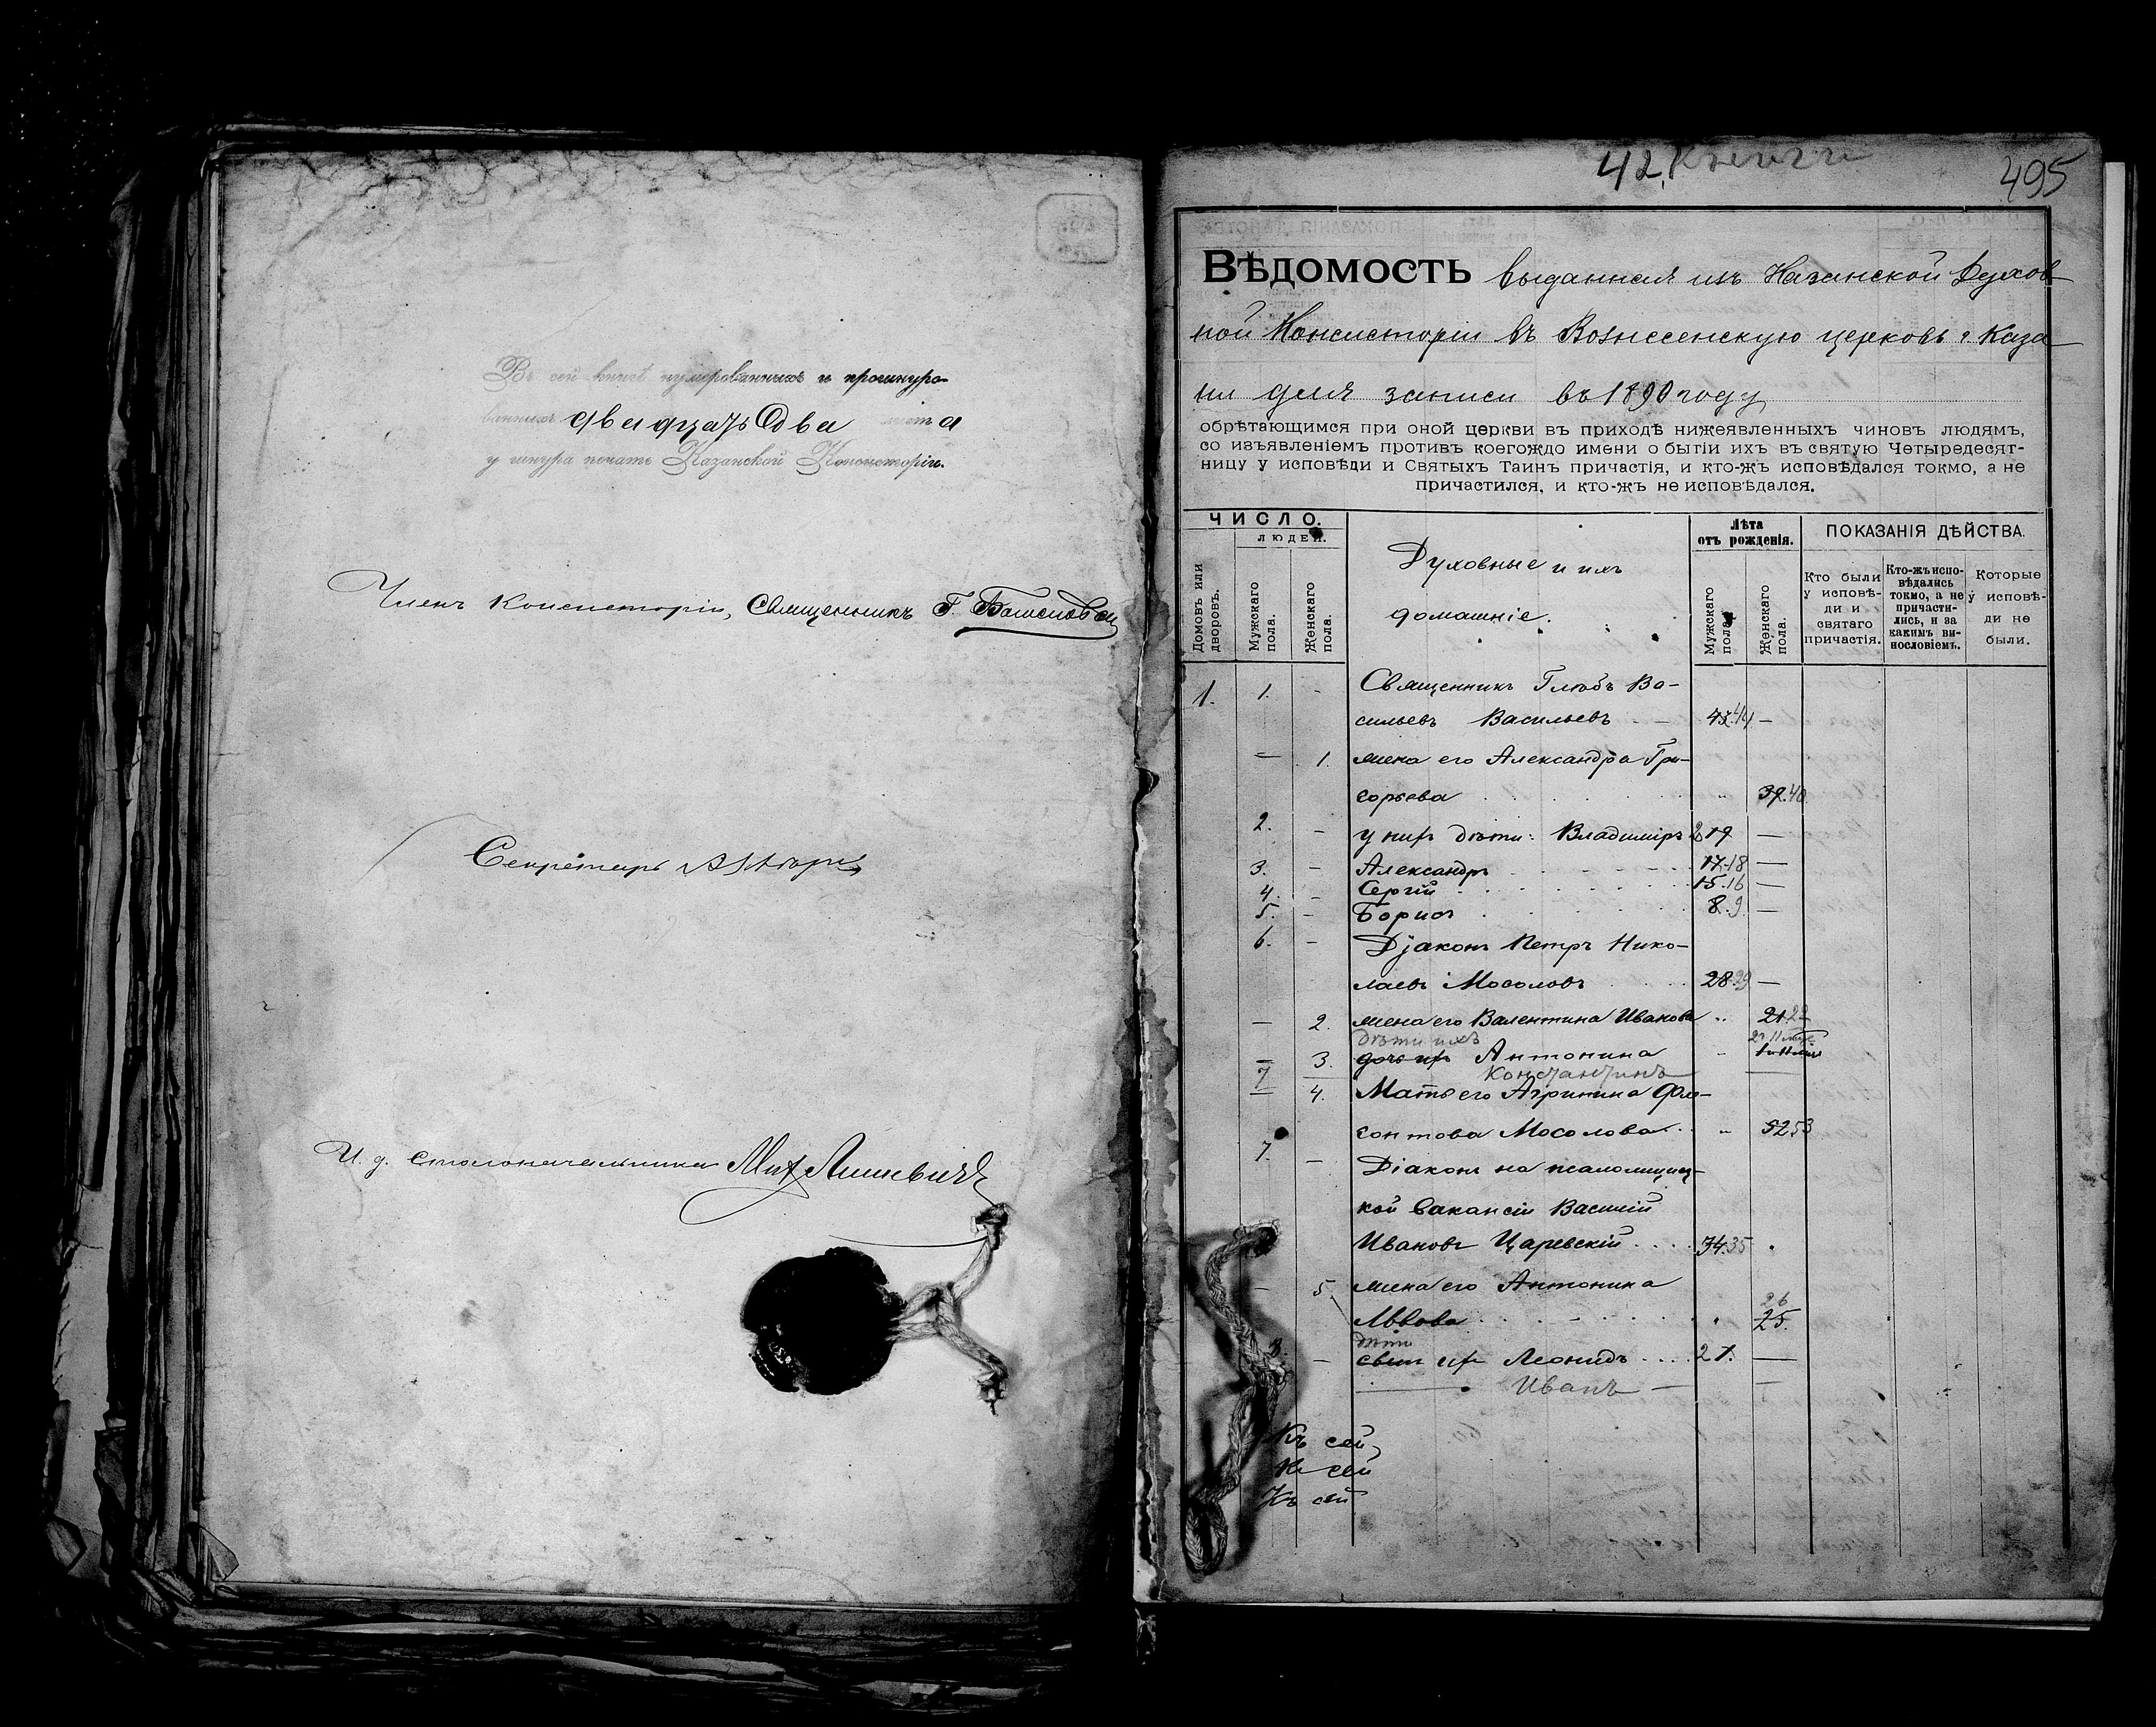 Въ сей книгѣ нумерованныхъ и прошнуро-
ванныхъ двадцать два листа
у шнура печать Казанской Консисторіи.
Членъ Консисторіи, Священникъ Г.
Секретарь
И. д. столоначальника Мих
42 Книги
495
ВѢДОМОСТЬ выданная изъ Казанской Духов-
ной Консисторіи въ Вознесенскую церковь г. Каза-
ни для записи въ 1890 году
обрѣтающимся при оной церкви въ приходѣ нижеявленныхъ чиновъ людямъ,
со изъявленіемъ противъ коегождо имени о бытіи ихъ въ святую Четыредесят-
ницу у исповѣди и Святыхъ Таинъ причастія, и кто-жъ исповѣдался токмо, а не
причастился, и кто-жъ не исповѣдался.
ЧИСЛО.
ЛЮДЕЙ.
Домовъ или дворовъ.
Мужскаго пола.
Женскаго пола.
Духовные и ихъ
домашніе.
Лѣта
отъ рожденія.
Мужскаго пола.
Женскаго пола.
ПОКАЗАНІЯ ДѢЙСТВА.
Кто были у исповѣ-ди и святаго причастія.
Кто-жъ испо-вѣдались токмо, а не причасти-лись, и за какимъ ви-нословіемъ.
Которые у исповѣ-ди не были.
1. 1. - Священникъ Глѣбъ Ва-
сильевъ Васильевъ 43 44 —
— 1. жена его Александра Гри-
горьева 39. 40.
2. - у нихъ дѣти: Владиміръ 19 —
3. - Александръ 17. 18 —
4. - Сергій 15. 16 —
5. - Борисъ 8. 9. —
6. - Діаконъ Петръ Нико-
лаевъ Мосоловъ 28 29 —
— 2. жена его Валентина Иванова 21. 22
дѣти ихъ
— 3. дочь ихъ Антонина
7 Константинъ
— 4. Мать его Агрипина
Мосолова 52 53
7. - Діаконъ на псаломщиц-
кой вакансіи Василій
Ивановъ Царевскій 34. 35
- 5 жена его Антонина
Львова 26 25.
дѣти
8. - сынъ ихъ Леонидъ 2 1. —
Иванъ —
Къ сей
Къ сей
Къ сей